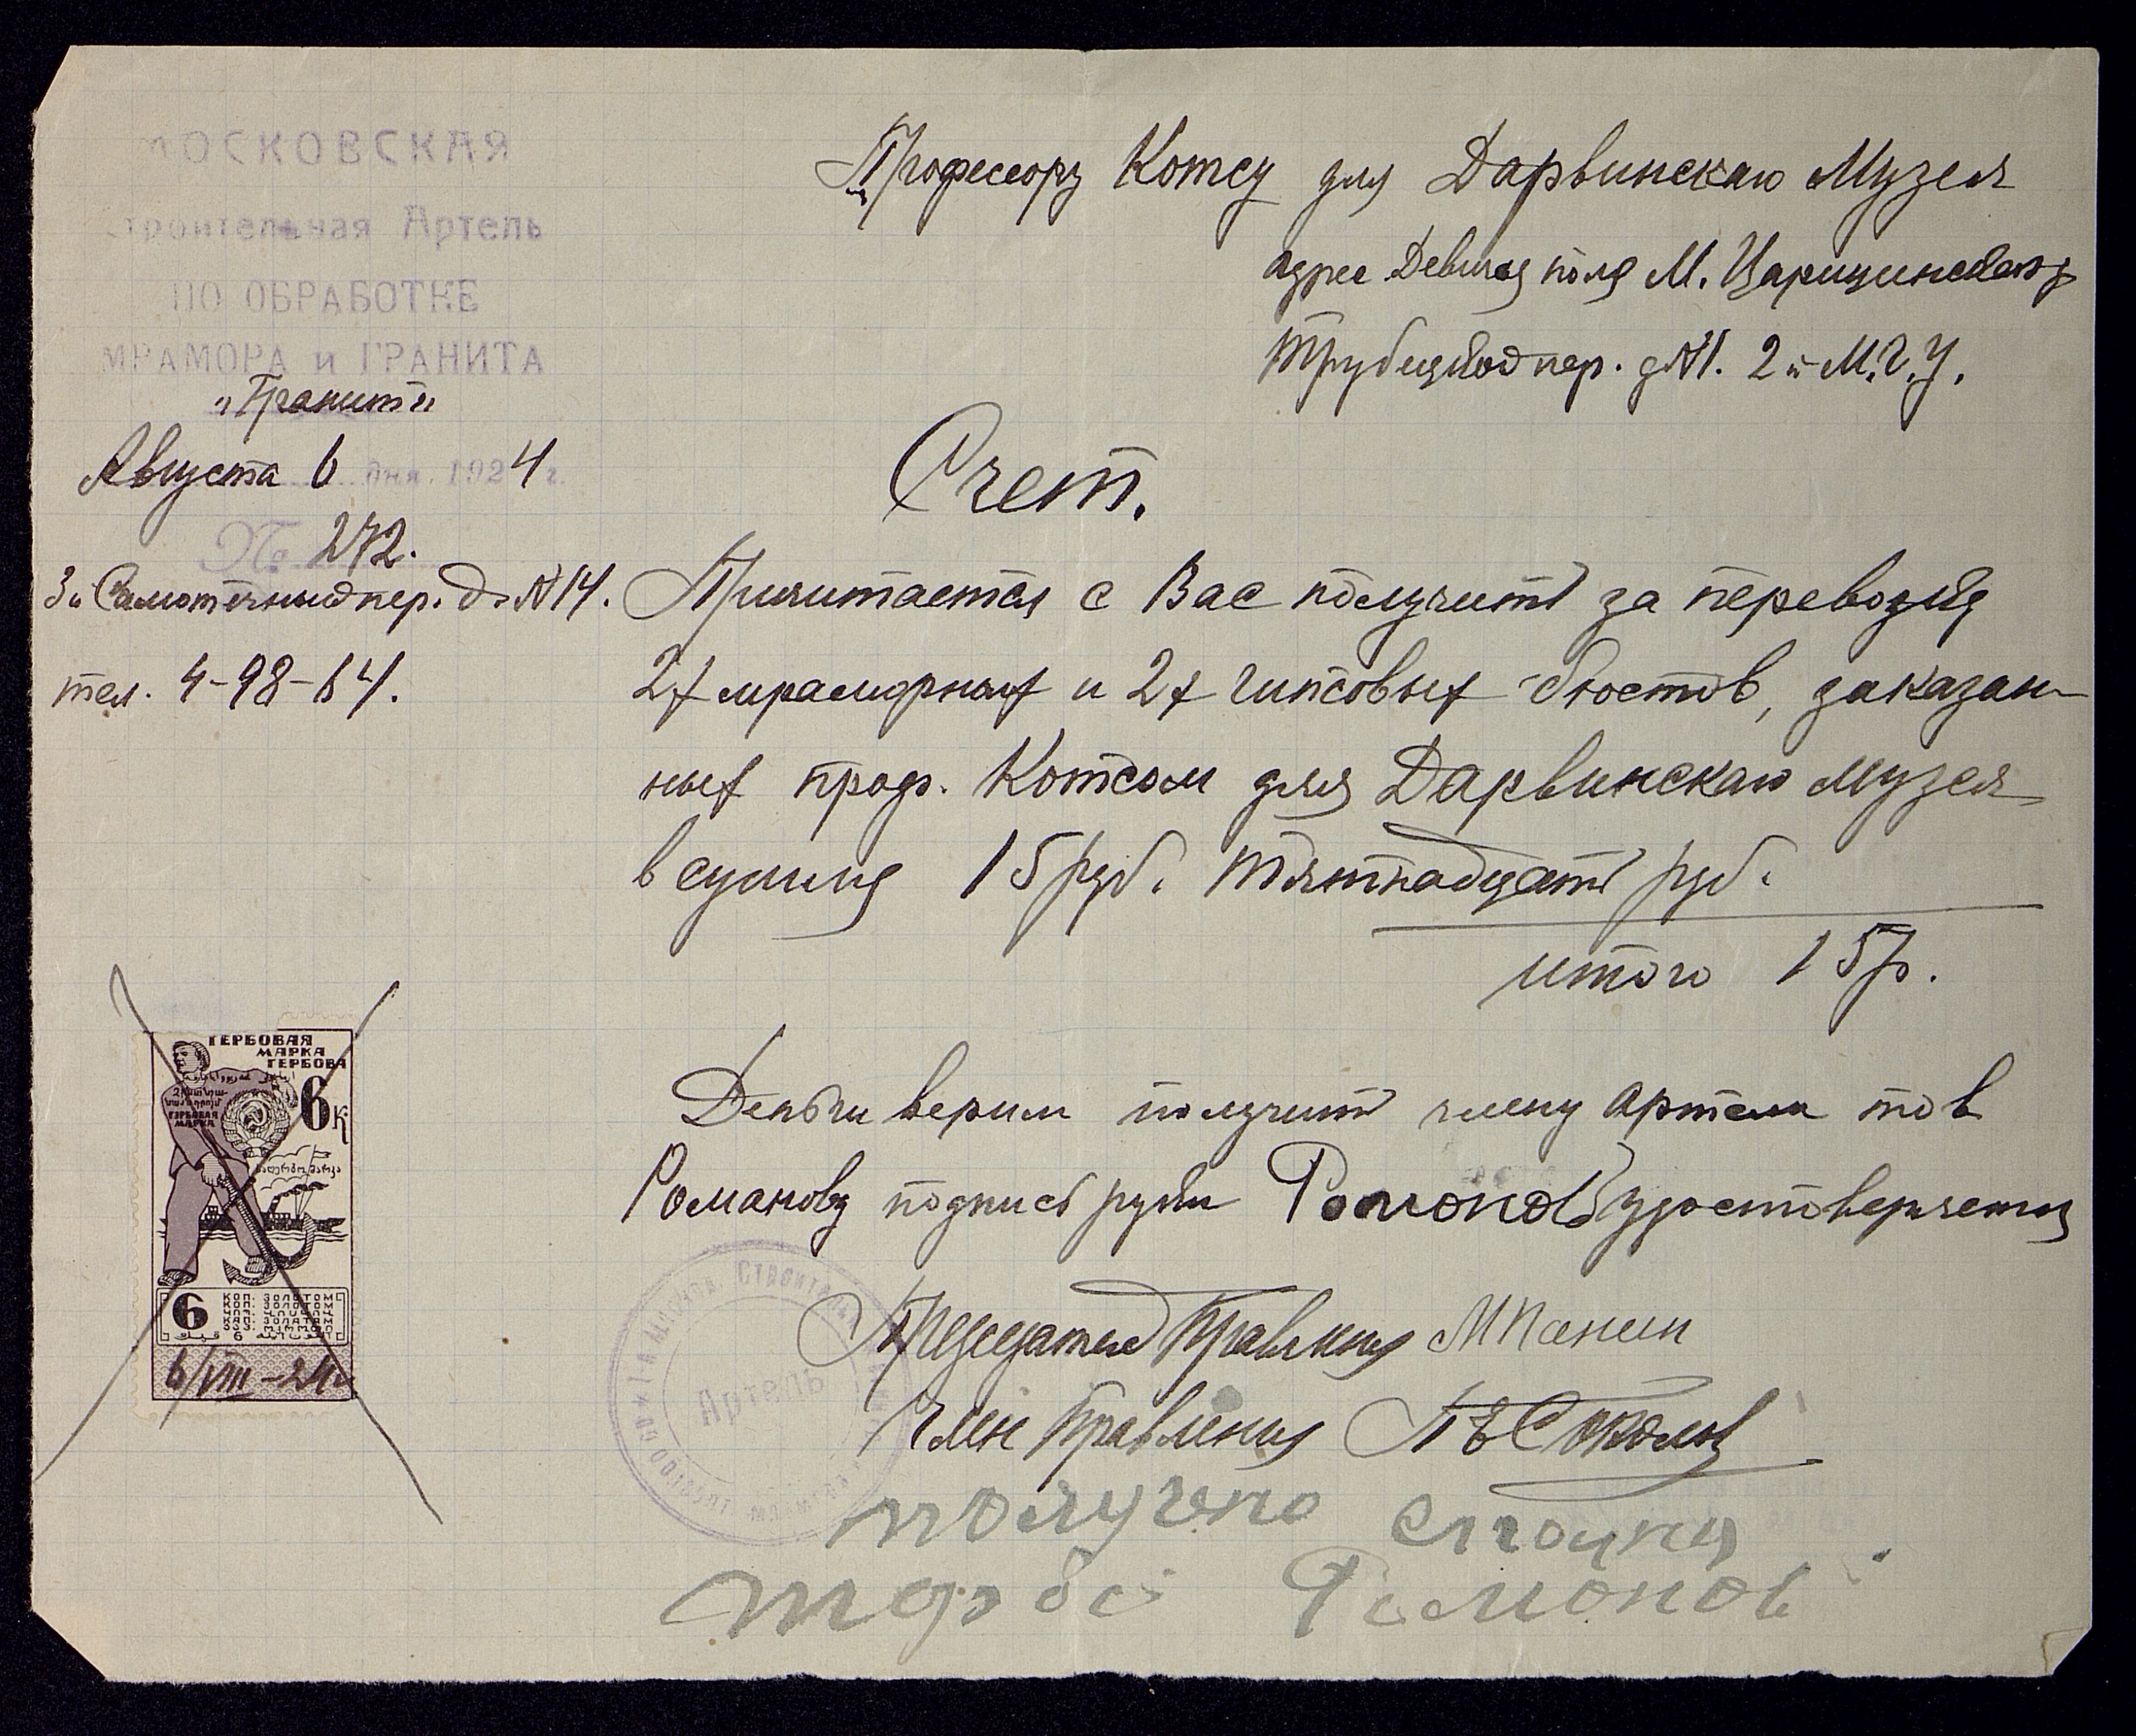 МОСКОВСКАЯ
Строительная Артель
ПО ОБРАБОТКЕ
МРАМОРА и ГРАНИТА
„Гранит"
Августа 6 дня 1924 г.
№ 272.
3й Самотечный пер. д. №14.
тел. 4-98-64.
Профессору Котсу для Дарвинскаго Музея
адрес Девичья поля М. Царицинская
Трубецкой пер. д №1. 2й М.Г.У.
Счет.
Причитается с Вас получить за перевозку
2х мраморных и 2х гипсовых бюстов, заказан-
ных проф. Котсом для Дарвинскаго музея
в сумме 15 руб. Пятнадцать руб.
итого 15 р.
Деньги верим получить члену артели тов
Романову подпись руки Романов удостоверяется
Председатель Правления М Панин
Член Правления П Е Соколов
получно
Романов
ГЕРБОВАЯ
МАРКА
ГЕРБОВА
ГЕРБОВАЯ
МАРКА
6 К
6
КОП. ЗОЛОТОМ
6/VIII-24г
Артель